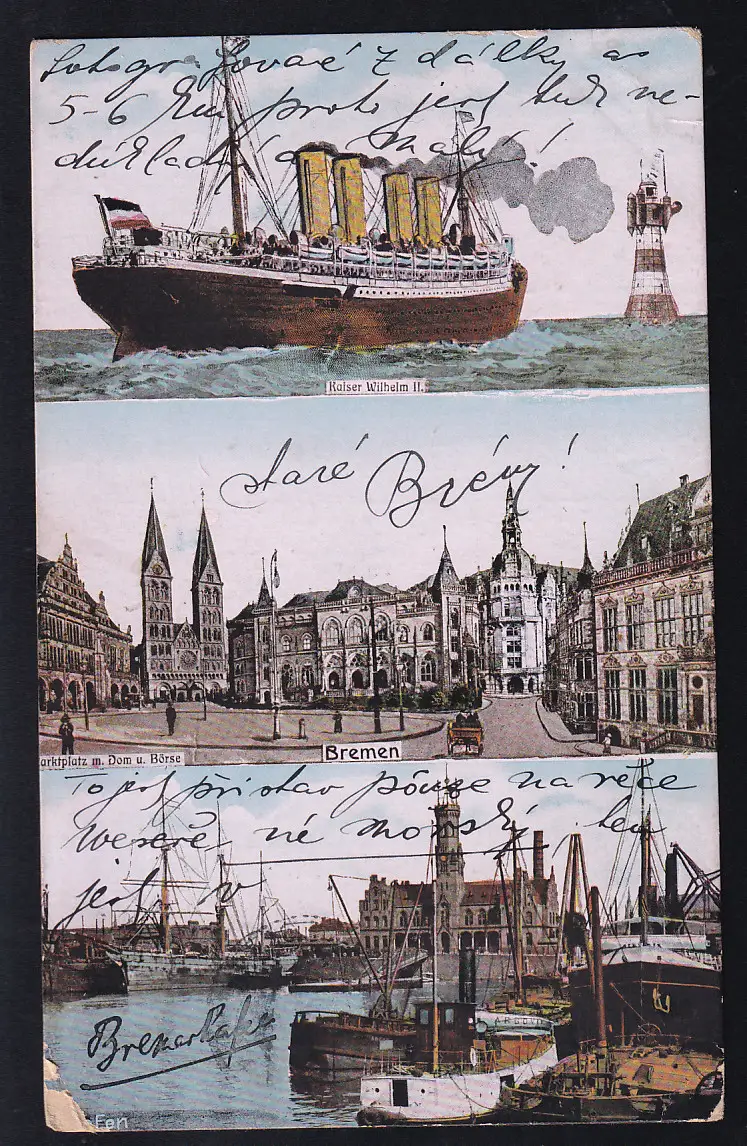 Fotografované z dálky as
5-6 Km proto jest tak ne-
důkladný a malý!
Kaiser Wilhelm II.
staré Brémy!
Bremen
arktplatz m. Dom u. Börse
To jest přístav pouze na řece
Weseře, né mořský, ten
jest v
Bremerhafen
ARGO
Fen